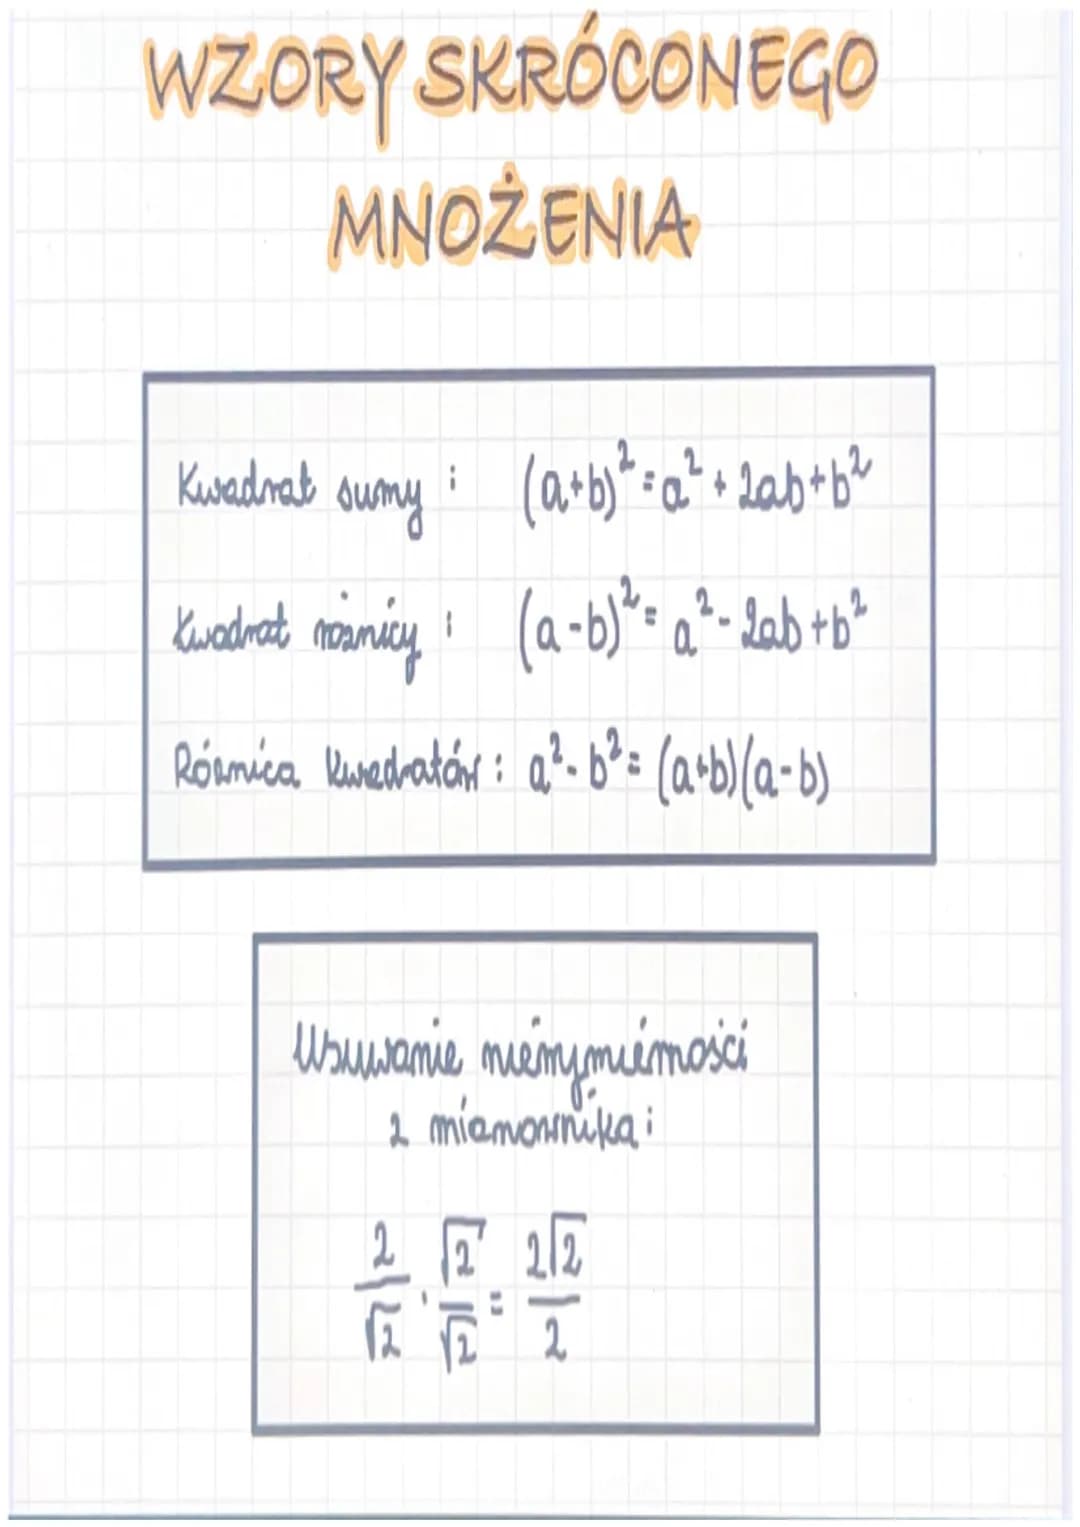 WZORY SKRÓCONEGO
MNOŻENIA
Kwadrat sumy : (a+b)² = a² + 2ab+b²
Kwadrat różnicy : (a-b)² = a² - 2ab +b²
Różnica kwadratów : a² - b² = (a+b)(a-b)
Usuwanie niewymierności
z mianownika :
2/√2 · √2/√2 = 2√2/2